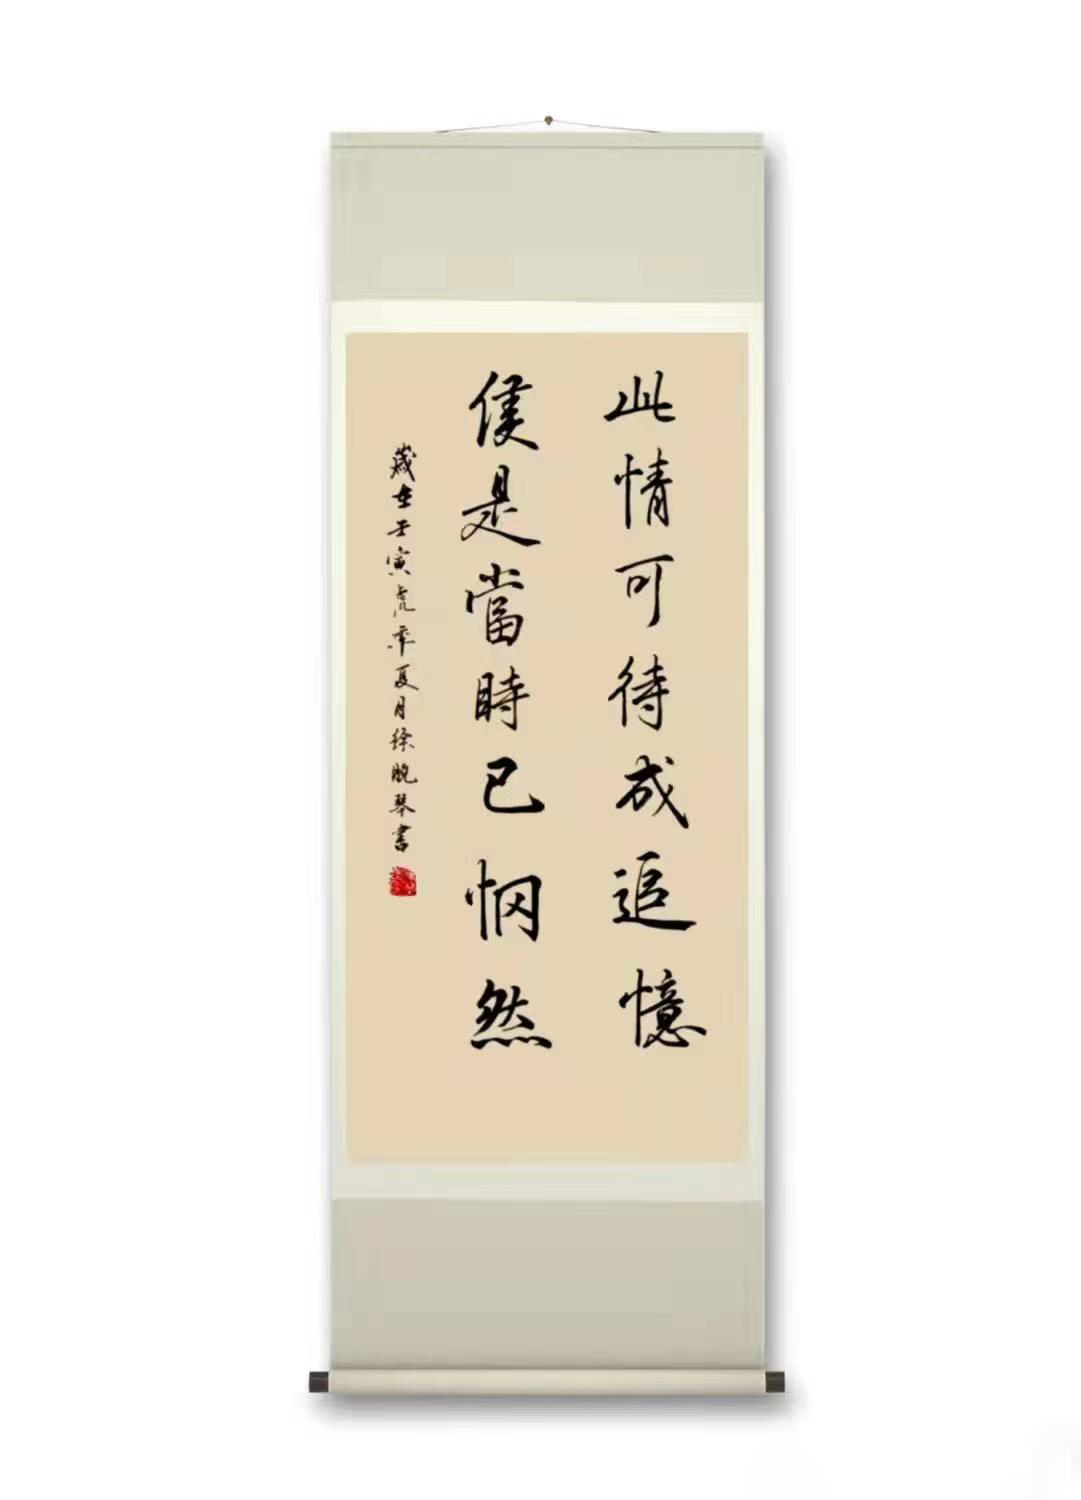 此情可待成追憶
僅是當時已惘然
歲在壬寅虎年夏月徐晚琴書